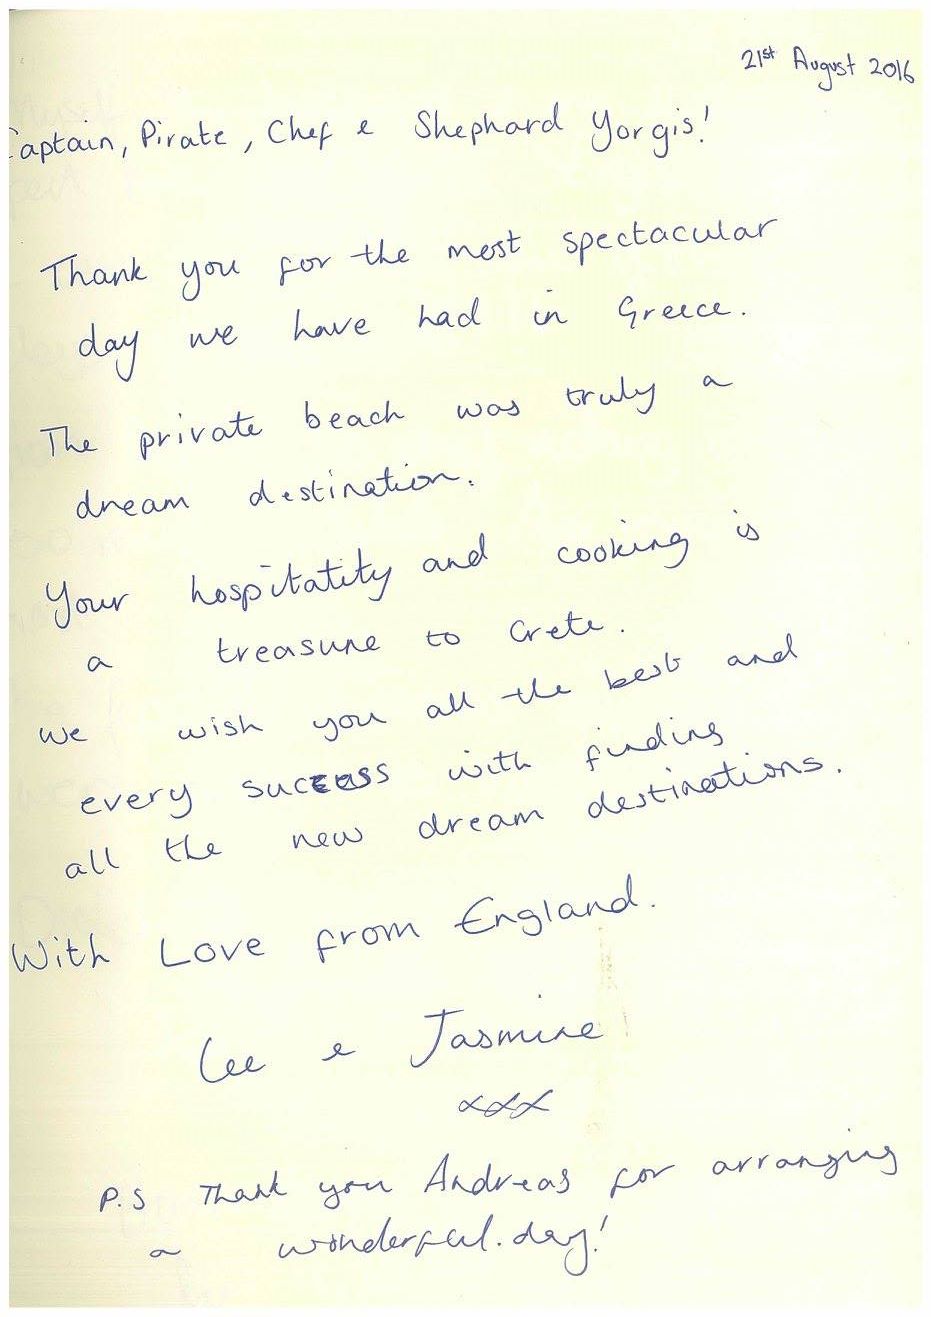 21st August 2016
Captain, Pirate, Chef & Shephard Yorgis!
Thank you for the most spectacular
day we have had in Greece.
The private beach was truly a
dream destination.
Your hospitatity and cooking is
a treasure to Crete.
We wish you all the best and
every success with finding
all the new dream destinations.
With Love from England.
Lee & Jasmine
xxx
P.S Thank you Andreas for arranging
a wonderful day!